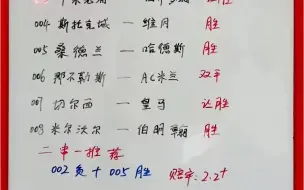 004 斯托克城 — 维冈 胜
005 桑德兰 — 哈德斯 胜
006 那不勒斯 — AC米兰 双平
007 切尔西 — 皇马 让胜
009 米尔沃尔 — 伯明翰 胜
二串一推荐
002负 + 005胜 赔率:2.2+